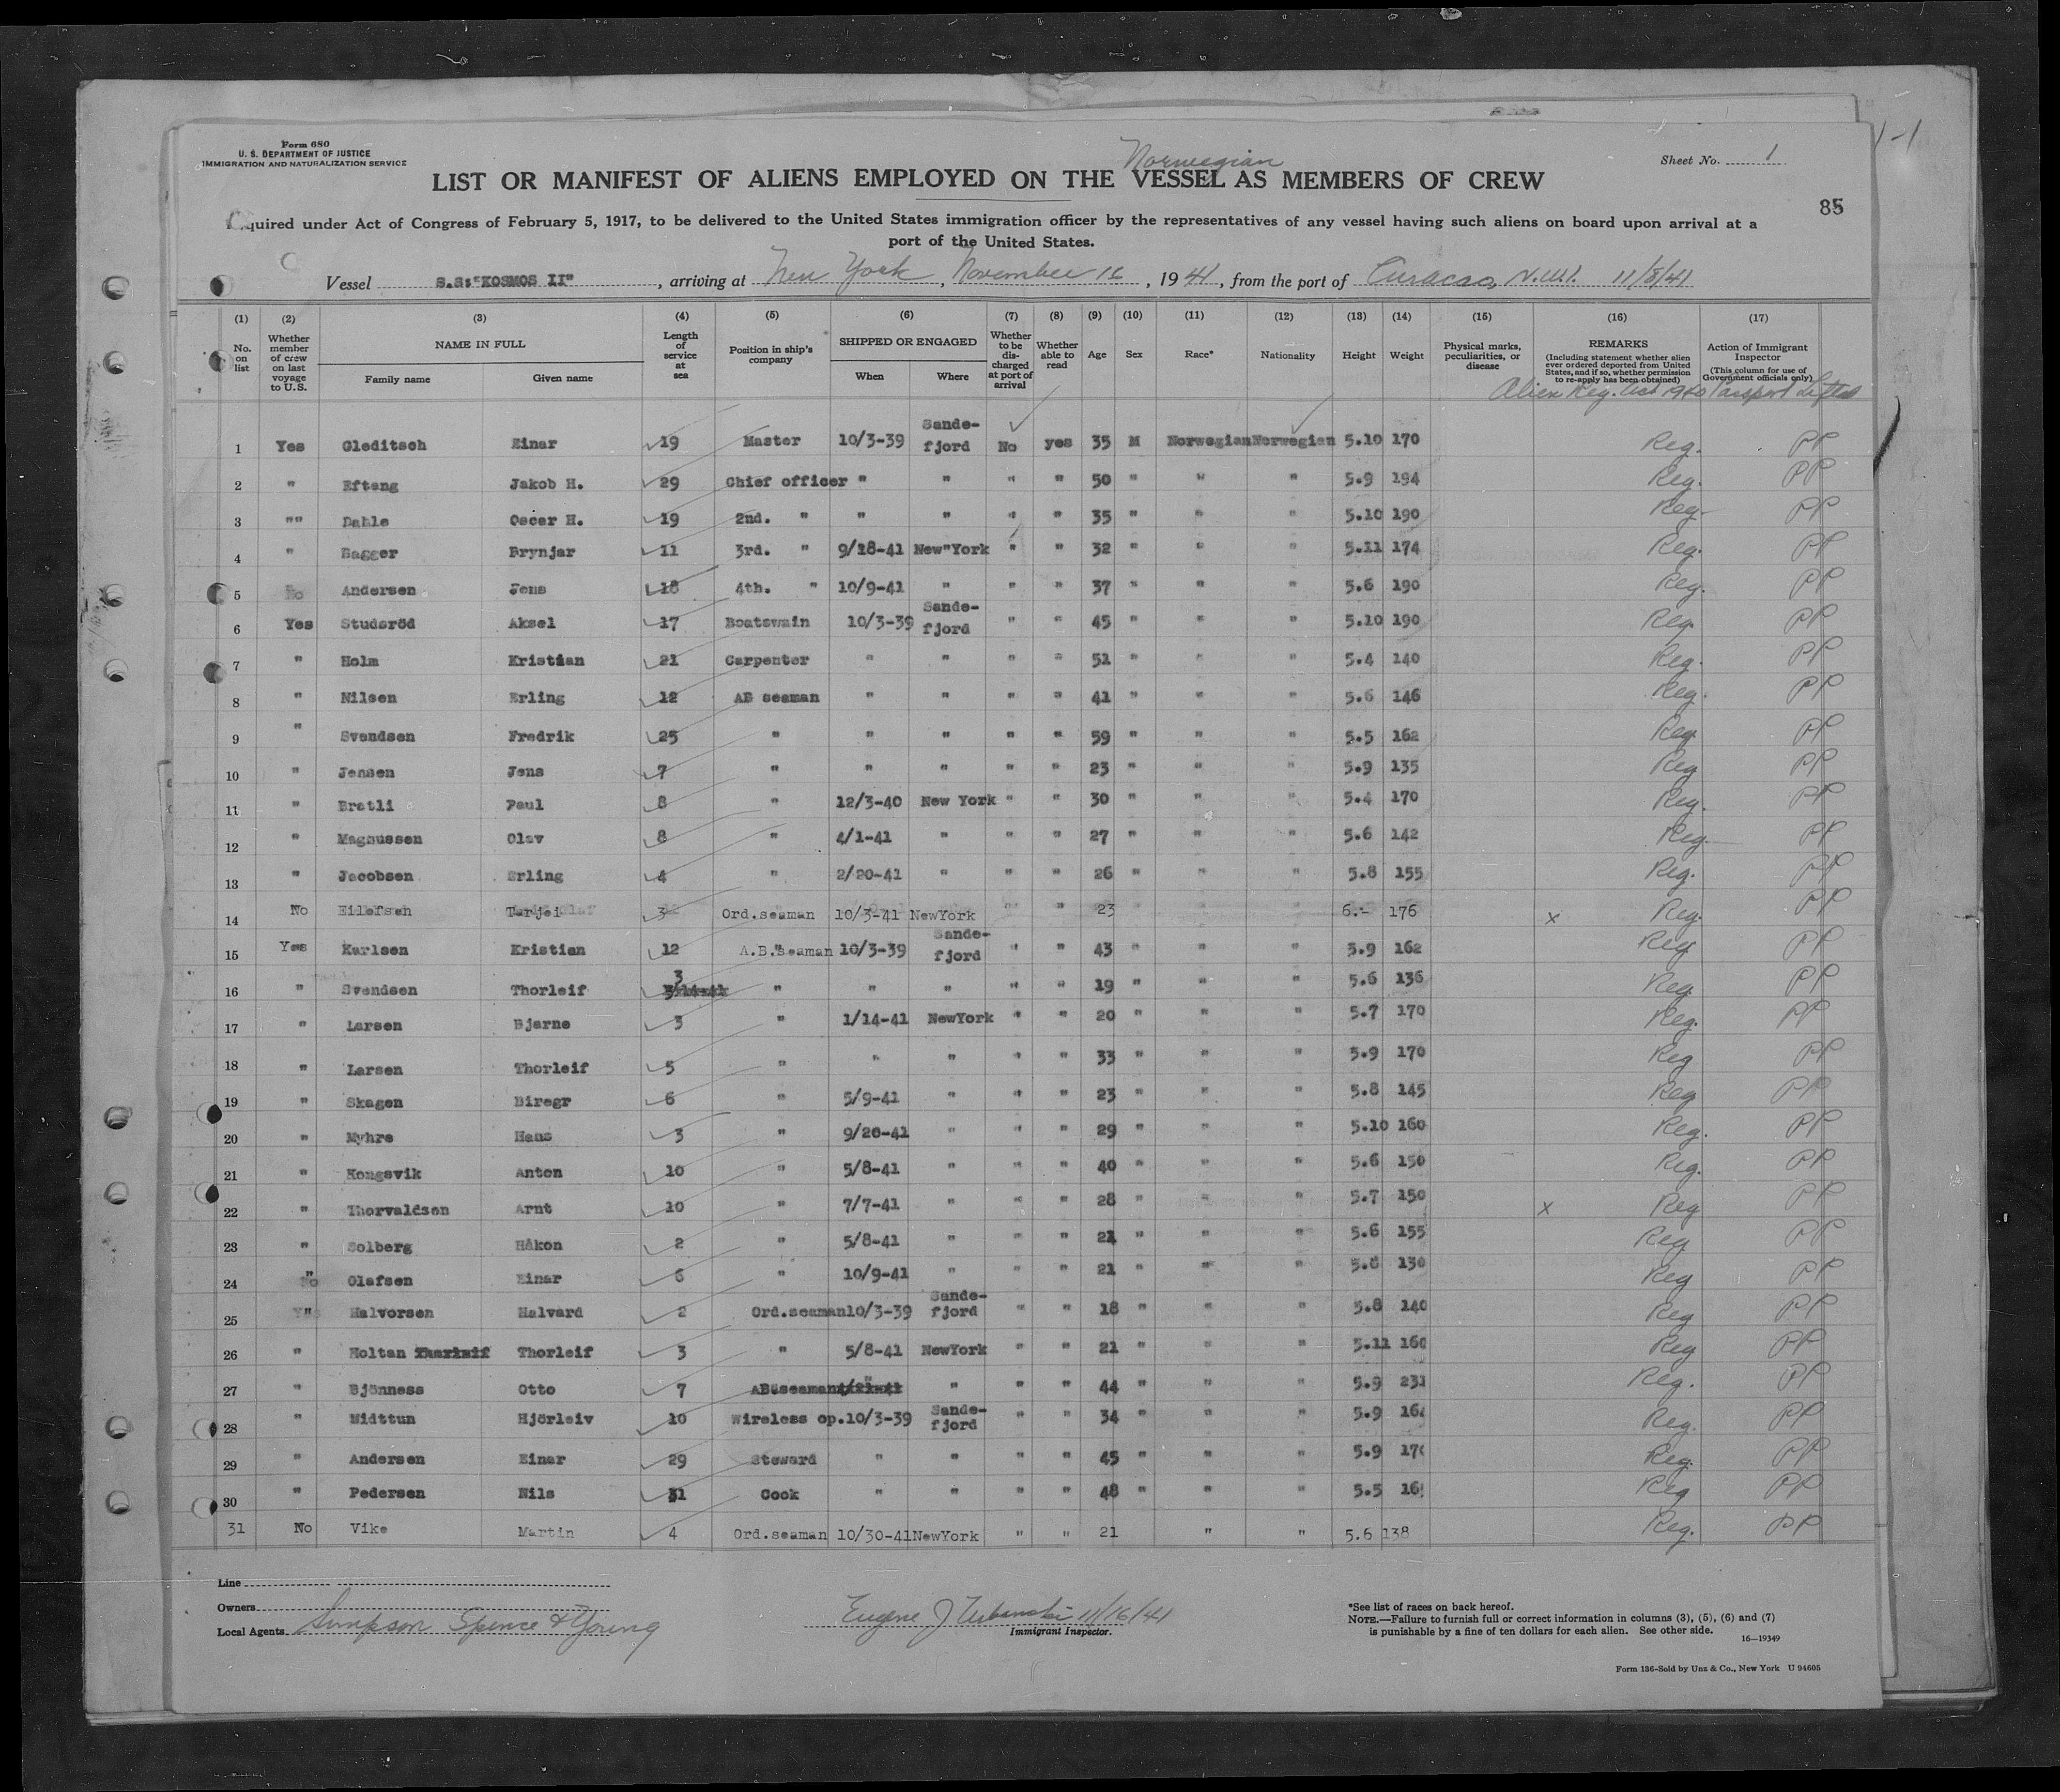 Form 680
U. S. DEPARTMENT OF JUSTICE
IMMIGRATION AND NATURALIZATION SERVICE
Norwegian
Sheet No. 1
1-1
LIST OR MANIFEST OF ALIENS EMPLOYED ON THE VESSEL AS MEMBERS OF CREW
85
quired under Act of Congress of February 5, 1917, to be delivered to the United States immigration officer by the representatives of any vessel having such aliens on board upon arrival at a
port of the United States.
Vessel S.S."KOSMOS II", arriving at New York, November 16, 1941, from the port of Curacao, N.W.I. 11/8/41
(1) (2) (3) (4) (5) (6) (7) (8) (9) (10) (11) (12) (13) (14) (15) (16) (17)
No. on list Whether member of crew on last voyage to U.S. NAME IN FULL Family name Given name Length of service at sea Position in ship's company SHIPPED OR ENGAGED When Where Whether to be discharged at port of arrival Whether able to read Age Sex Race* Nationality Height Weight Physical marks, peculiarities, or disease REMARKS (Including statement whether alien ever ordered deported from United States, and if so, whether permission to re-apply has been obtained) Action of Immigrant Inspector (This column for use of Government officials only)
Alien Reg. Act 1940 Passport Lifted
1 Yes Gleditsch Einar 19 Master 10/3-39 Sande-fjord No yes 35 M Norwegian Norwegian 5.10 170 Reg. PP
2 " Efteng Jakob H. 29 Chief officer " " " " 50 " " " 5.9 194 Reg. PP
3 "" Dahle Oscar H. 19 2nd. " " " " " 35 " " " 5.10 190 Reg. PP
4 " Bagger Brynjar 11 3rd. " 9/18-41 New"York " " 32 " " " 5.11 174 Reg. PP
5 No Andersen Jens 18 4th. " 10/9-41 " " " 37 " " " 5.6 190 Reg. PP
6 Yes Studsröd Aksel 17 Boatswain 10/3-39 Sande-fjord " " 45 " " " 5.10 190 Reg. PP
7 " Holm Kristian 21 Carpenter " " " " 51 " " " 5.4 140 Reg. PP
8 " Nilsen Erling 12 AB seaman " " " " 41 " " " 5.6 146 Reg. PP
9 " Svendsen Fredrik 25 " " " " " 59 " " " 5.5 162 Reg PP
10 " Jensen Jens 7 " " " " " 23 " " " 5.9 135 Reg PP
11 " Bratli Paul 8 " 12/3-40 New York " " 30 " " " 5.4 170 Reg. PP
12 " Magnussen Olav 8 " 4/1-41 " " " 27 " " " 5.6 142 Reg. PP
13 " Jacobsen Erling 4 " 2/20-41 " " " 26 " " " 5.8 155 Reg. PP
14 No Eilefsen Tarjei Ord.seaman 10/3-41 NewYork " " 23 6.- 176 x Reg. PP
15 Yes Karlsen Kristian 12 A.B.seaman 10/3-39 Sande-fjord " " 43 " " " 5.9 162 Reg PP
16 " Svendsen Thorleif 3 " " " " " 19 " " " 5.6 136 Reg. PP
17 " Larsen Bjarne 3 " 1/14-41 NewYork " " 20 " " " 5.7 170 Reg. PP
18 " Larsen Thorleif 5 " " " " " 33 " " " 5.9 170 Reg PP
19 " Skagen Biregr 6 " 5/9-41 " " " 23 " " " 5.8 145 Reg PP
20 " Myhre Hans 3 " 9/20-41 " " " 29 " " " 5.10 160 Reg. PP
21 " Kongsvik Anton 10 " 5/8-41 " " " 40 " " " 5.6 150 Reg. PP
22 " Thorvaldsen Arnt 10 " 7/7-41 " " " 28 " " " 5.7 150 x Reg PP
23 " Solberg Håkon 2 " 5/8-41 " " " 21 " " " 5.6 155 Reg PP
24 No Olafsen Einar 6 " 10/9-41 " " " 21 " " " 5.8 130 Reg PP
25 Yes Halvorsen Halvard 2 Ord.seaman 10/3-39 Sande-fjord " " 18 " " " 5.8 140 Reg PP
26 " Holtan Thorleif 3 " 5/8-41 NewYork " " 21 " " " 5.11 160 Reg PP
27 " Bjönness Otto 7 AB seaman " " " " 44 " " " 5.9 231 Reg. PP
28 " Midttun Hjörleiv 10 Wireless op. 10/3-39 Sande-fjord " " 34 " " " 5.9 16 Reg. PP
29 " Andersen Einar 29 Steward " " " " 45 " " " 5.9 17 Reg. PP
30 " Pedersen Nils 31 Cook " " " " 48 " " " 5.5 16 Reg PP
31 No Vike Martin 4 Ord.seaman 10/30-41 NewYork " " 21 " " 5.6 138 Reg. PP
Line
Owners
Local Agents Simpson Spence & Young
Eugene J 11/16/41
Immigrant Inspector.
*See list of races on back hereof.
NOTE.—Failure to furnish full or correct information in columns (3), (5), (6) and (7)
is punishable by a fine of ten dollars for each alien. See other side.
16—19349
Form 136-Sold by Unz & Co., New York U 94605